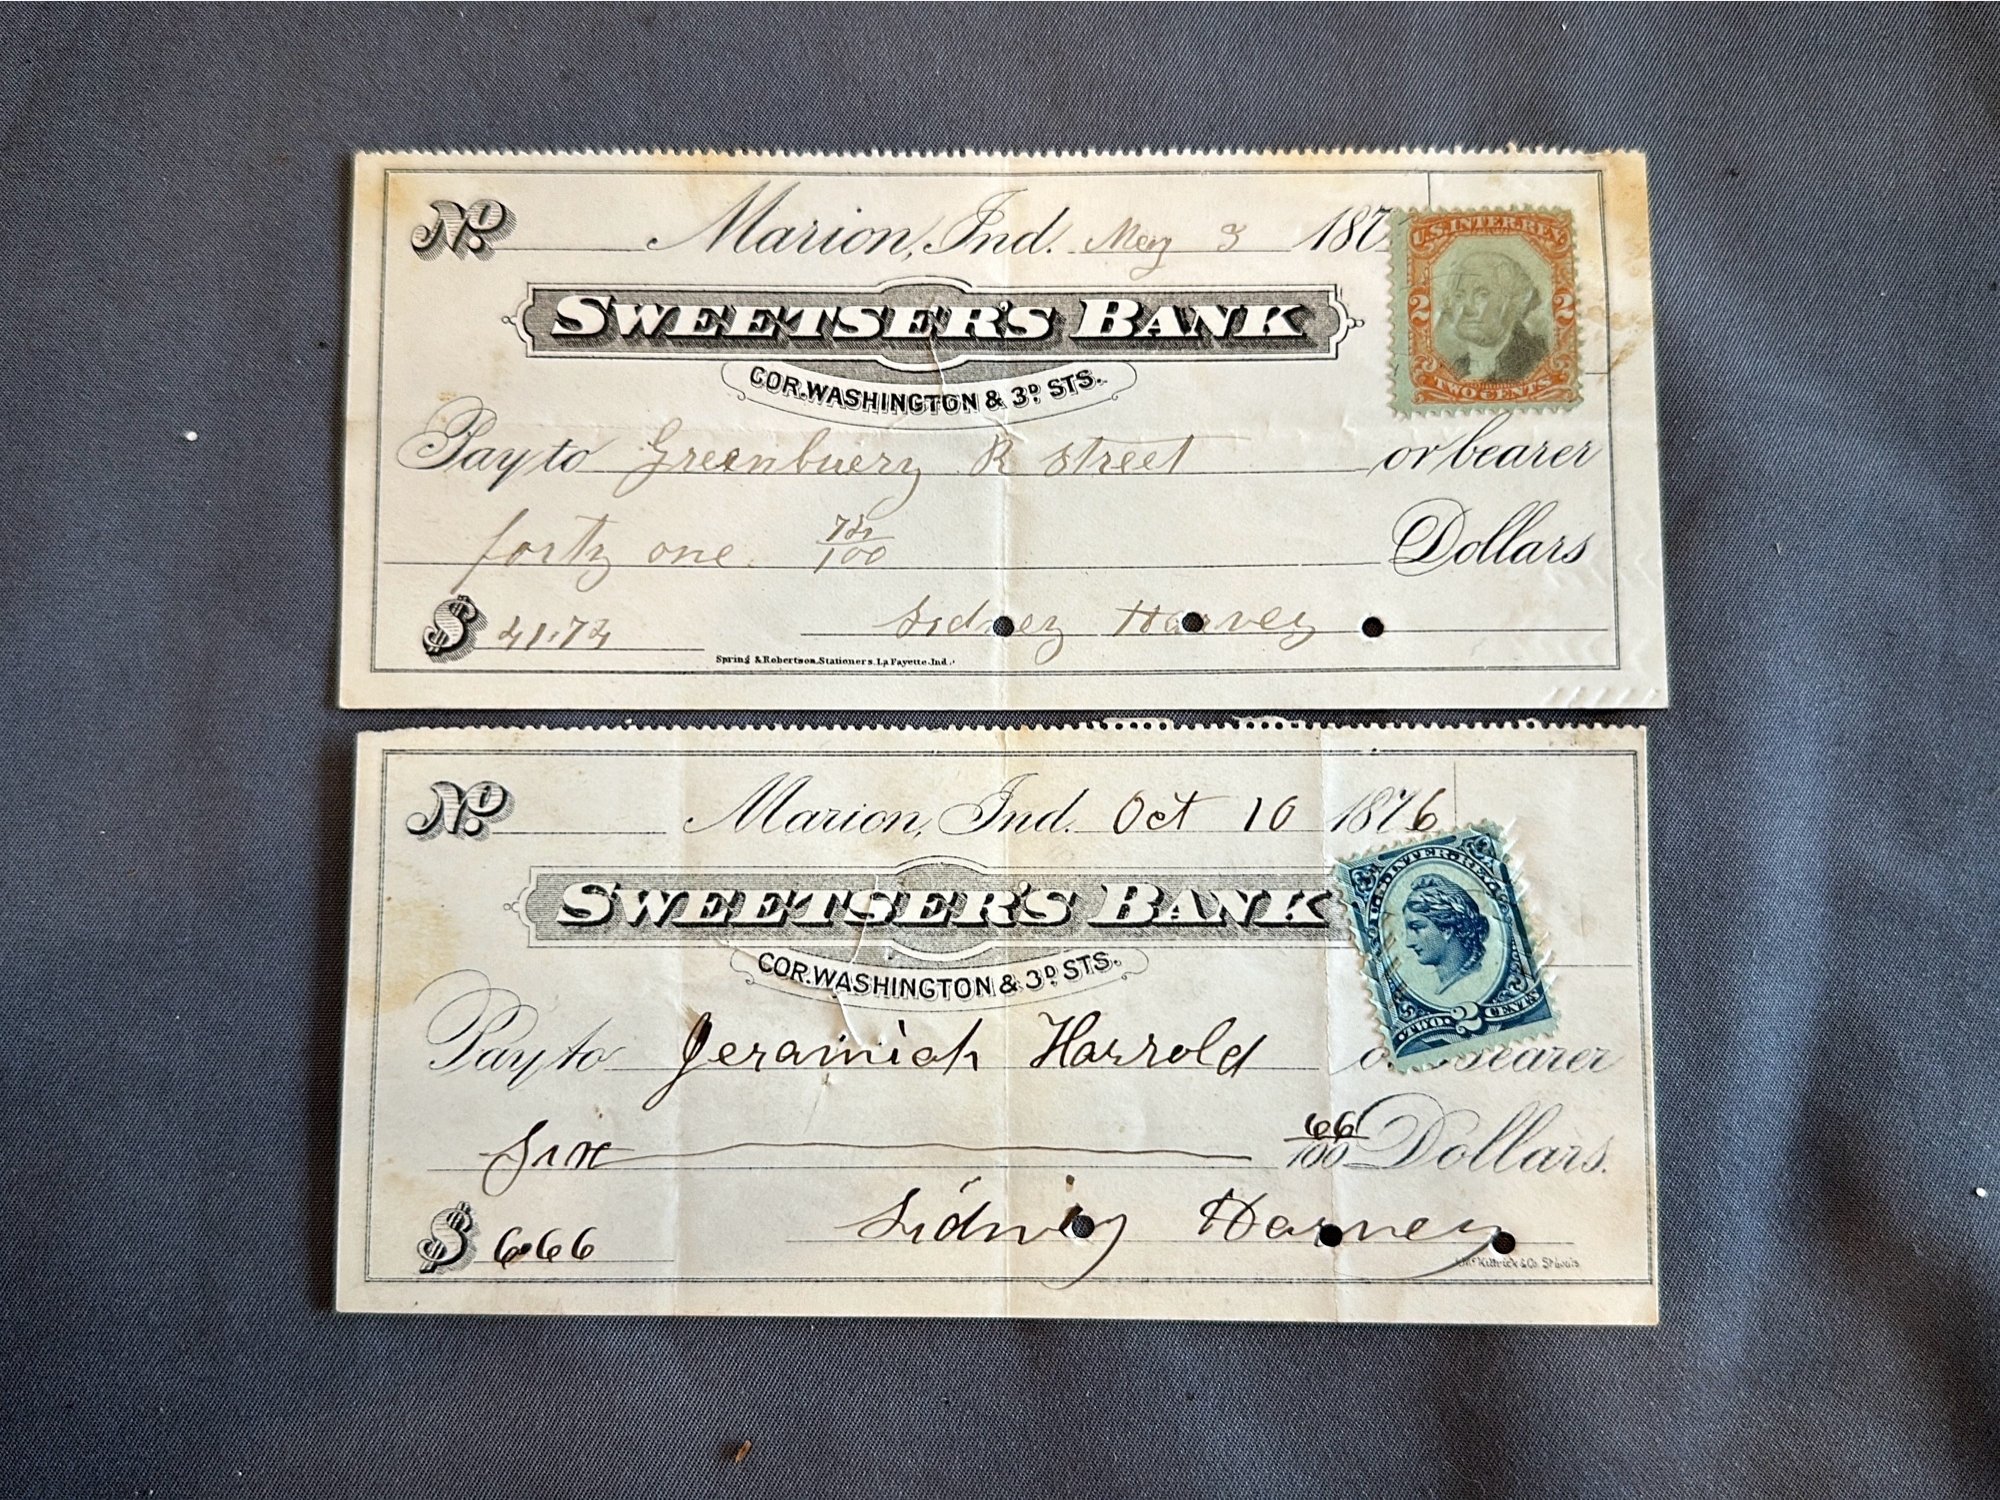 No. Marion, Ind. May 3 187
U.S. INTER. REV.
SWEETSER'S BANK
2 2
COR. WASHINGTON & 3D STS.
TWO CENTS
Pay to Greenbuery R Street or bearer
forty one 72/100 Dollars
$ 41.72 Sidney Harvey
Spring & Robertson, Stationers, La Fayette, Ind.
No. Marion, Ind. Oct 10 1876
U.S. INTER. REV.
SWEETSER'S BANK
COR. WASHINGTON & 3D STS.
TWO 2 CENTS
Pay to Jeramiah Harrold bearer
Six 66/100 Dollars.
$ 6.66 Sidney Harvey
Kittrick & Co. St Louis